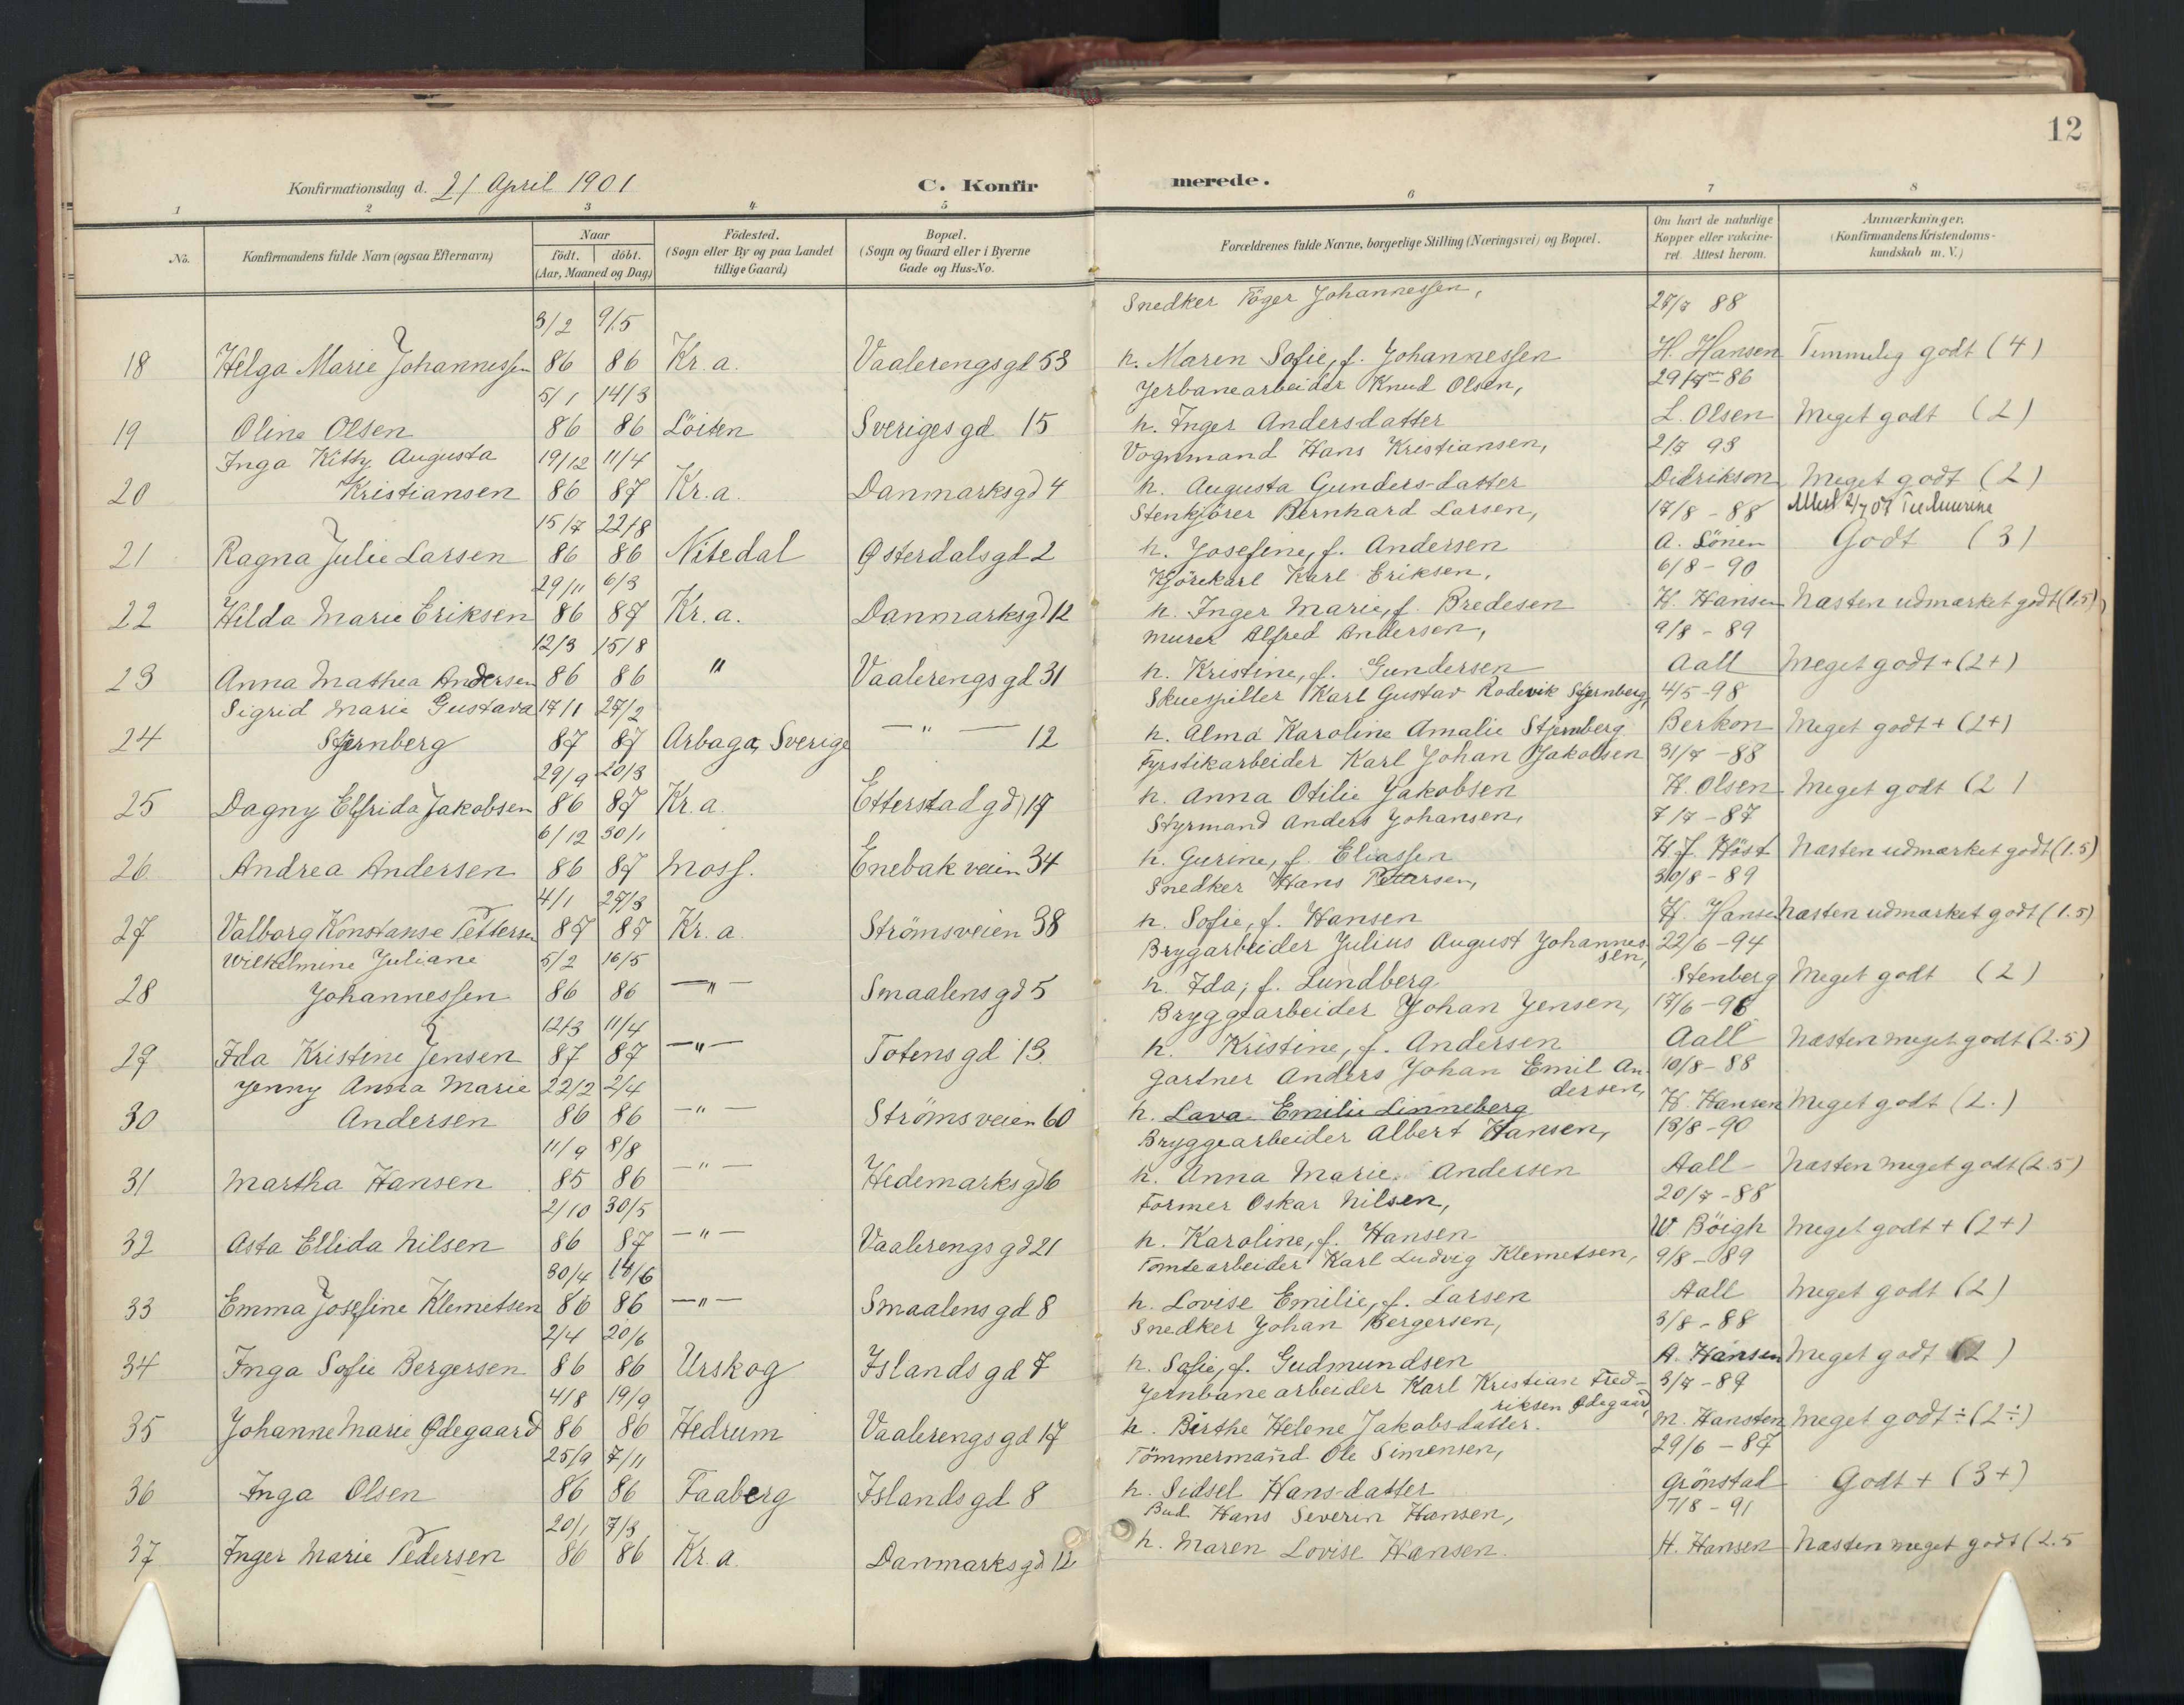 12
Konfirmationsdag d. 21 April 1901
C. Konfirmerede.
1 2 3 4 5 6 7 8
No.
Konfirmandens fulde Navn (ogsaa Efternavn)
Naar
født. døbt.
(Aar, Maaned og Dag)
Födested.
(Sogn eller By og paa Landet
tillige Gaard)
Bopæl.
(Sogn og Gaard eller i Byerne
Gade og Hus-No.
Forældrenes fulde Navne, borgerlige Stilling (Næringsvei) og Bopæl.
Om havt de naturlige
Kopper eller vakcine-
ret. Attest herom.
Anmærkninger,
(Konfirmandens Kristendoms-
kundskab m. V.)
3/2 9/5 Snedker Töger Johannessen, 27/7 88
18 Helga Marie Johannessen 86 86 Kr. a. Vaalerengsgd 53 h. Maren Sofie, f. Johannessen H. Hansen Temmelig godt (4)
5/1 14/3 Jerbanearbeider Knud Olsen, 29/7 - 86
19 Oline Olsen 86 86 Löiten Sveriges gd 15 h. Inger Andersdatter L. Olsen Meget godt (2)
Inga Kitty Augusta 19/12 11/4 Vognmand Hans Kristiansen, 2/7 93
20 Kristiansen 86 87 Kr. a. Danmarksgd 4 h. Augusta Gunders-datter Didrikson Meget godt (2)
15/7 22/8 Stenkjörer Bernhard Larsen, 17/8 - 88
21 Ragna Julie Larsen 86 86 Nitedal Østerdalsgd 2 h. Josefine, f. Andersen A. Lönen Godt (3)
29/11 6/3 Kjörekarl Karl Eriksen, 6/8 - 90
22 Hilda Marie Eriksen 86 87 Kr. a. Danmarksgd 12 h. Inger Marie, f. Bredesen H. Hansen Næsten udmærket godt (1.5)
12/3 15/8 Murer Alfred Andersen, 9/8 - 89
23 Anna Mathea Andersen 86 86 " Vaalerengsgd 31 h. Kristine, f. Gundersen Aall Meget godt + (2+)
Sigrid Marie Gustava 17/1 27/2 Skuespiller Karl Gustav Rodevik Stjernberg, 4/5 - 98
24 Stjernberg 87 87 Arbaga, Sverige — " — 12 h. Alma Karoline Amalie Stjernberg Berkon Meget godt + (2+)
29/9 20/3 Fyrstikarbeider Karl Johan Jakobsen 31/7 - 88
25 Dagny Elfrida Jakobsen 86 87 Kr. a. Etterstadgd 17 h. Anna Otilie Jakobsen H. Olsen Meget godt (2)
6/12 30/1 Styrmand Anders Johansen, 7/7 - 87
26 Andrea Andersen 86 87 Moss. Enebakveien 34 h. Gurine, f. Eliassen H. J. Höst Næsten udmærket godt (1.5)
4/1 27/3 Snedker Hans Pettersen, 30/8 - 89
27 Valborg Konstanse Pettersen 87 87 Kr. a. Strömsveien 38 h. Sofie, f. Hansen H. Hansen Næsten udmærket godt (1.5)
Wilhelmine Juliane 5/2 16/5 Brygarbeider Julius August Johannes-
sen, 22/6 - 94
28 Johannessen 86 86 — " — Smaalensgd 5 h. Ida, f. Lundberg Stenberg Meget godt (2)
12/3 11/4 Bryggearbeider Johan Jensen, 17/6 - 96
29 Ida Kristine Jensen 87 87 — " — Totensgd 13. h. Kristine, f. Andersen Aall Næsten meget godt (2.5)
Jenny Anna Marie 22/2 2/4 Gartner Anders Johan Emil An-
dersen, 10/8 - 88
30 Andersen 86 86 — " — Strömsveien 60 h. Lava Emilie Linneberg H. Hansen Meget godt (2.)
11/9 8/8 Bryggearbeider Albert Hansen, 13/8 - 90
31 Martha Hansen 85 86 — " — Hedemarksgd 6 h. Anna Marie Andersen Aall - Næsten meget godt (2.5)
2/10 30/5 Former Oskar Nilsen, 20/7 - 88
32 Asta Ellida Nilsen 86 87 — " — Vaalerengsgd 21 h. Karoline, f. Hansen W. Böigh Meget godt + (2+)
30/4 14/6 Tomtearbeider Karl Ludvig Klemetsen, 9/8 - 89
33 Emma Josefine Klemetsen 86 86 — " — Smaalensgd 8 h. Lovise Emilie, f. Larsen Aall Meget godt (2)
2/4 20/6 Snedker Johan Bergersen, 3/8 - 88
34 Inga Sofie Bergersen 86 86 Urskog Islandsgd 7 h. Sofie, f. Gudmundsen A. Hansen Meget godt (2)
4/8 19/9 Jernbanearbeider Karl Kristian Fred-
riksen Ødegaard, 3/7 - 89
35 Johanne Marie Ødegaard 86 86 Hedrum Vaalerengsgd 17 h. Birthe Helene Jakobsdatter. M. Hansten Meget godt ÷ (2÷)
25/9 7/11 Tömmermand Ole Simensen, 29/6 - 87
36 Inga Olsen 86 86 Faaberg Islandsgd 8 h. Sidsel Hans-datter Grönstad Godt + (3+)
20/1 7/3 Bud Hans Severin Hansen, 7/8 - 91
37 Inger Marie Pedersen 86 86 Kr. a. Danmarksgd 12 h. Maren Lovise Hansen. H. Hansen Næsten meget godt (2.5